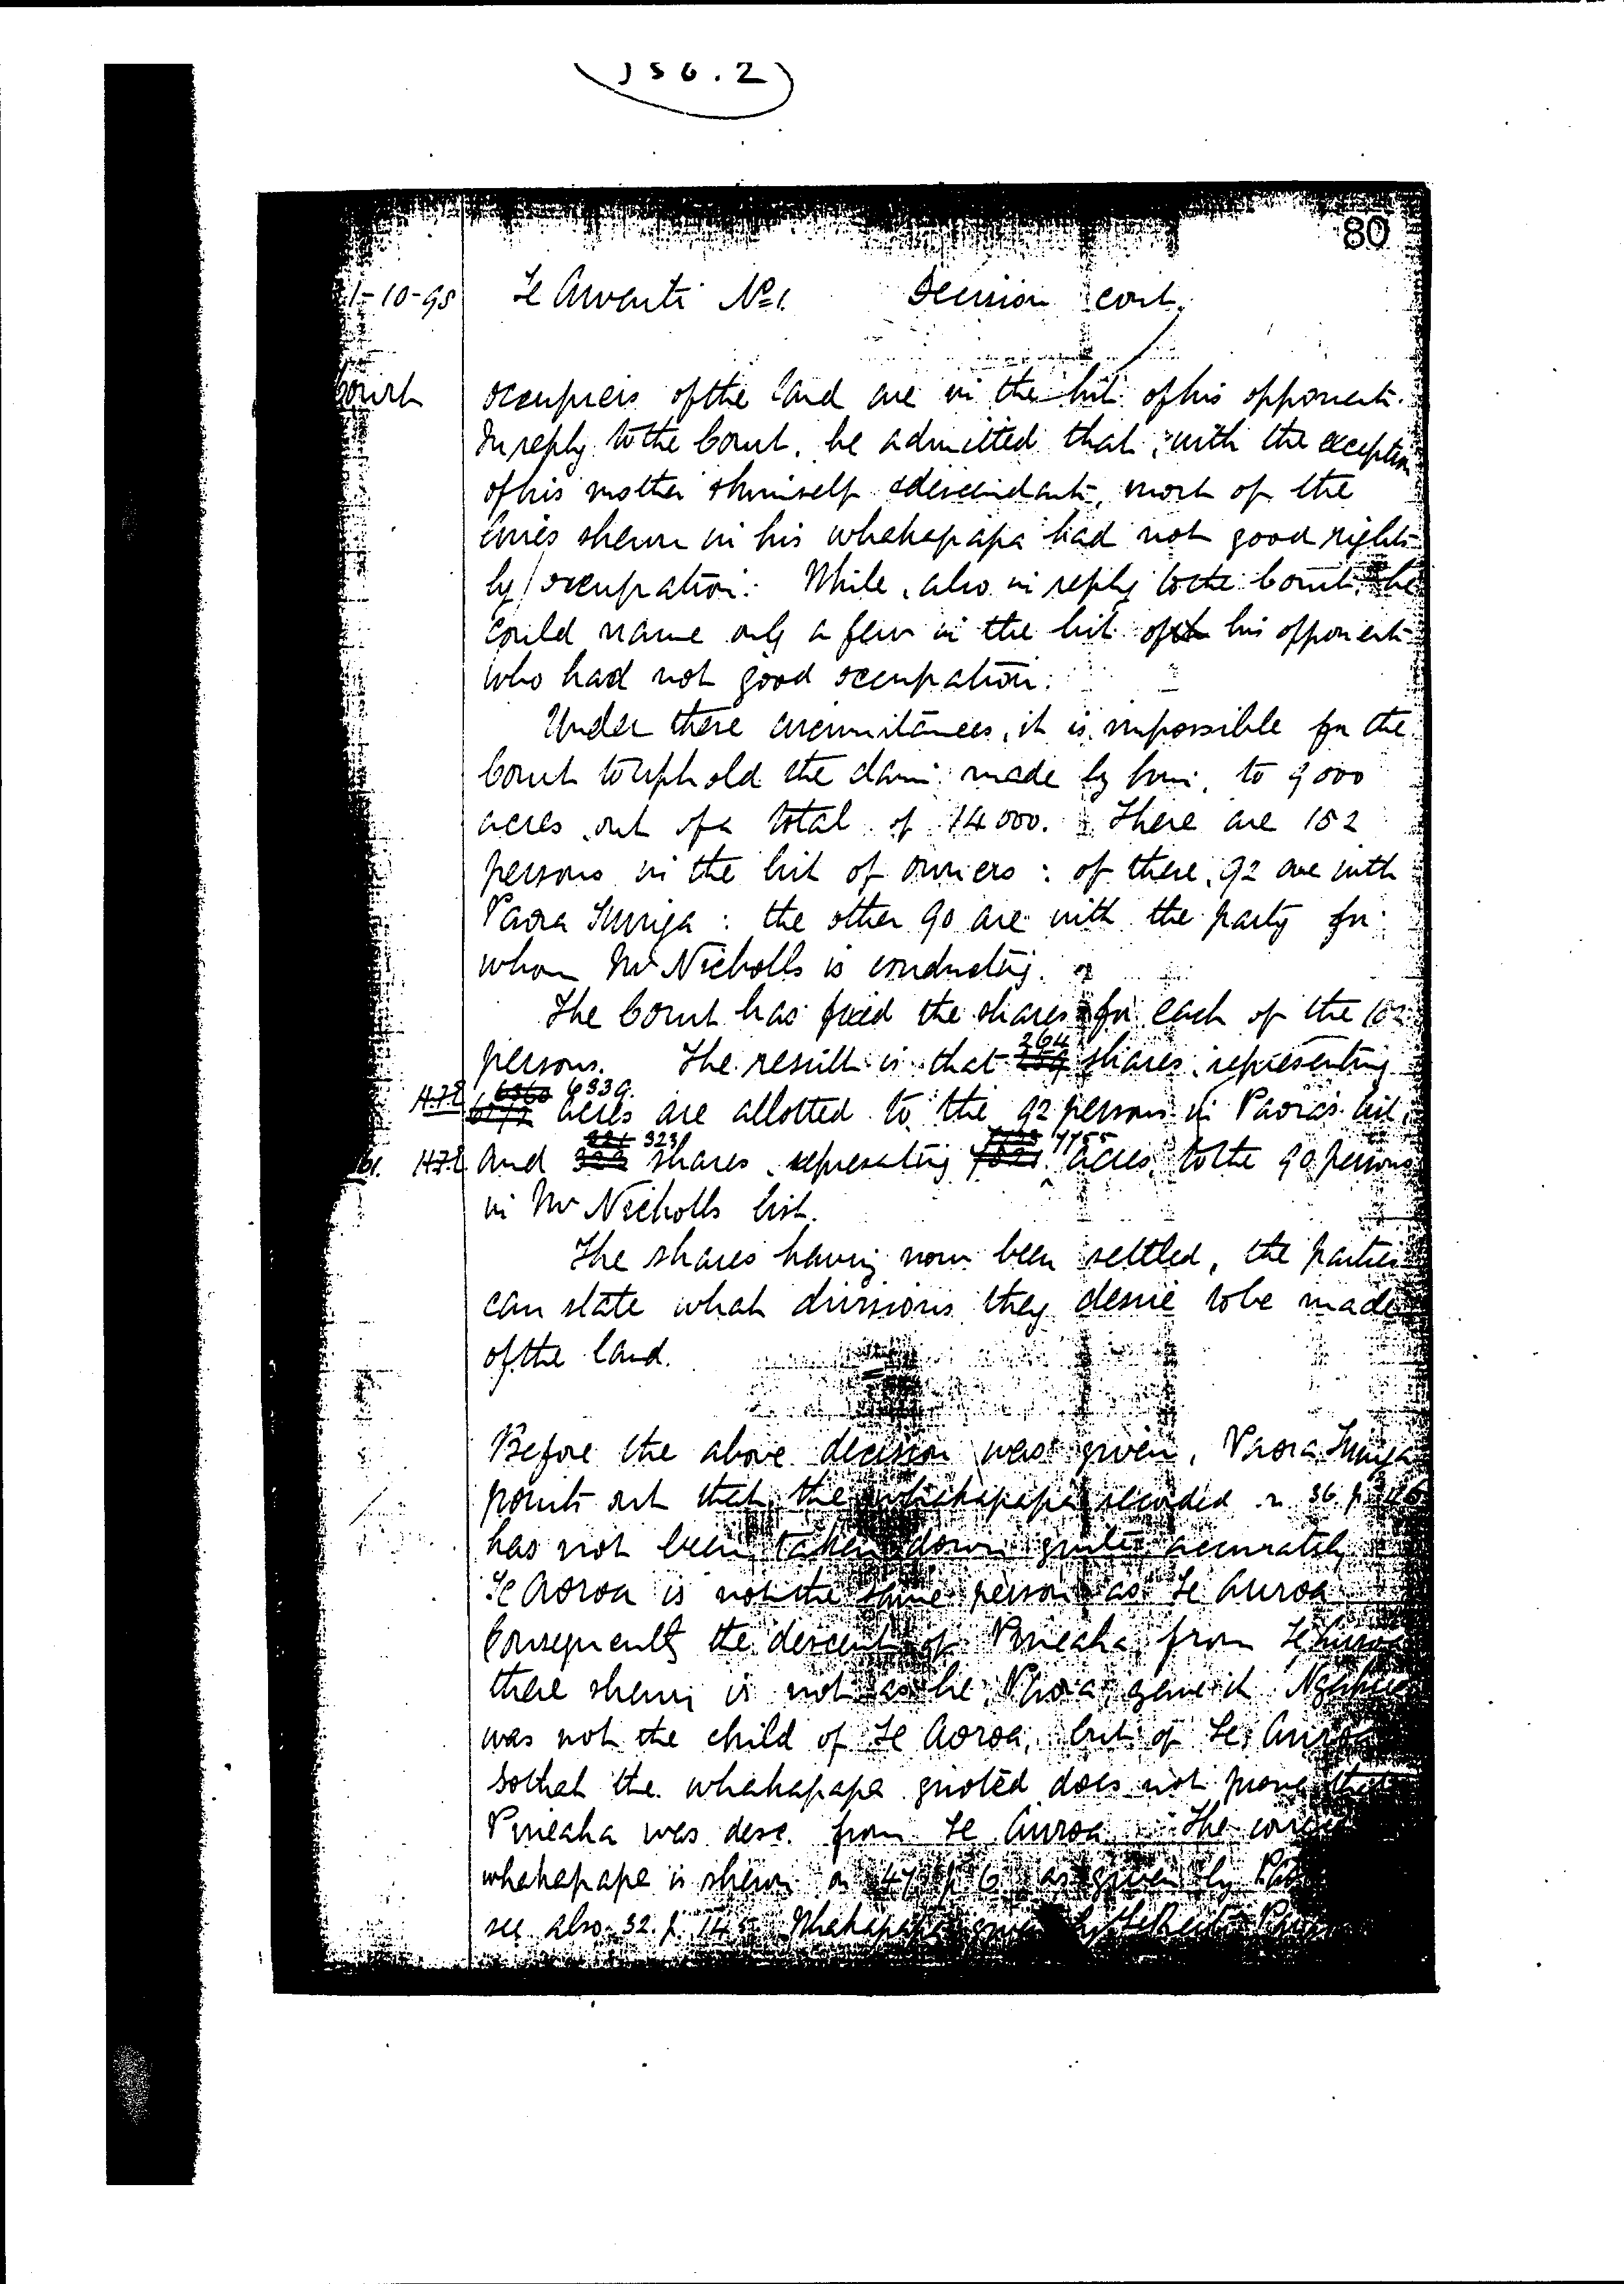 156.2
80
1-10-98 Te Awaiti No 1. Decision cont.
Court occupiers of the land are in the list of his opponents.
In reply to the Court, he admitted that, with the exception
of his mother & himself & descendants, most of the
lines shewn in his whakapapa had not good rights
by occupation. While, also in reply to the Court, he
could name only a few in the list of his opponents
who had not good occupation.
Under these circumstances, it is impossible for the
Court to uphold the claim made by him, to 9000
acres out of a total of 14000. There are 182
persons in the list of owners: of these, 92 are with
Paora: the other 90 are with the party for
whom Mr Nicholls is conducting.
The Court has fixed the shares for each of the 182
persons. The result is that 264 shares, representing
6339 acres are allotted to the 92 persons in Paora's list,
and 323 shares, representing 7755 acres, to the 90 persons
in Mr Nicholls list.
The shares having now been settled, the parties
can state what divisions they desire to be made
of the land.
Before the above decision was given, Paora
points out that the whakapapa recorded in 36 p.
has not been taken down quite accurately
Te Aoroa is not the same person as Te Auroa
Consequently the descent of Pineaha from Te Auroa
there shewn is not as he, Paora, gave it.
was not the child of Te Aoroa, but of Te Auroa
So that the whakapapa quoted does not prove that
Pineaha was desc. from Te Auroa. The correct
whakapapa is shewn in 47 p 6 as given by
see also 32. p. 145. Whakapapa given by